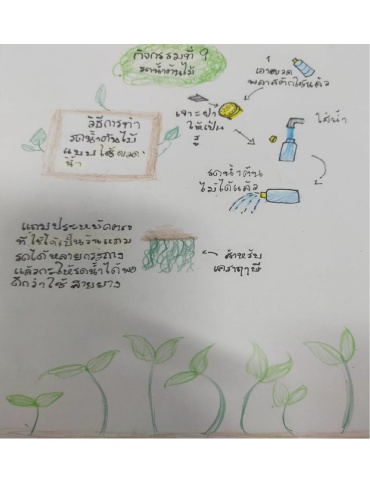 กิจกรรมที่ 9
รดน้ำต้นไม้
วิธีการทำ
รดน้ำต้นไม้
แบบใช้ขวด
น้ำ
1
เอาขวด
พลาสติกใช้แล้ว
เจาะฝา
ให้เป็น
รู
ใส่น้ำ
รดน้ำต้น
ไม้ได้แล้ว
แถมประหยัด
ที่ใช้ได้เป็นวันแถม
รดได้หลาย
แล้วกะให้รดน้ำได้พอ
ดีกว่าใช้สายยาง
สำหรับ